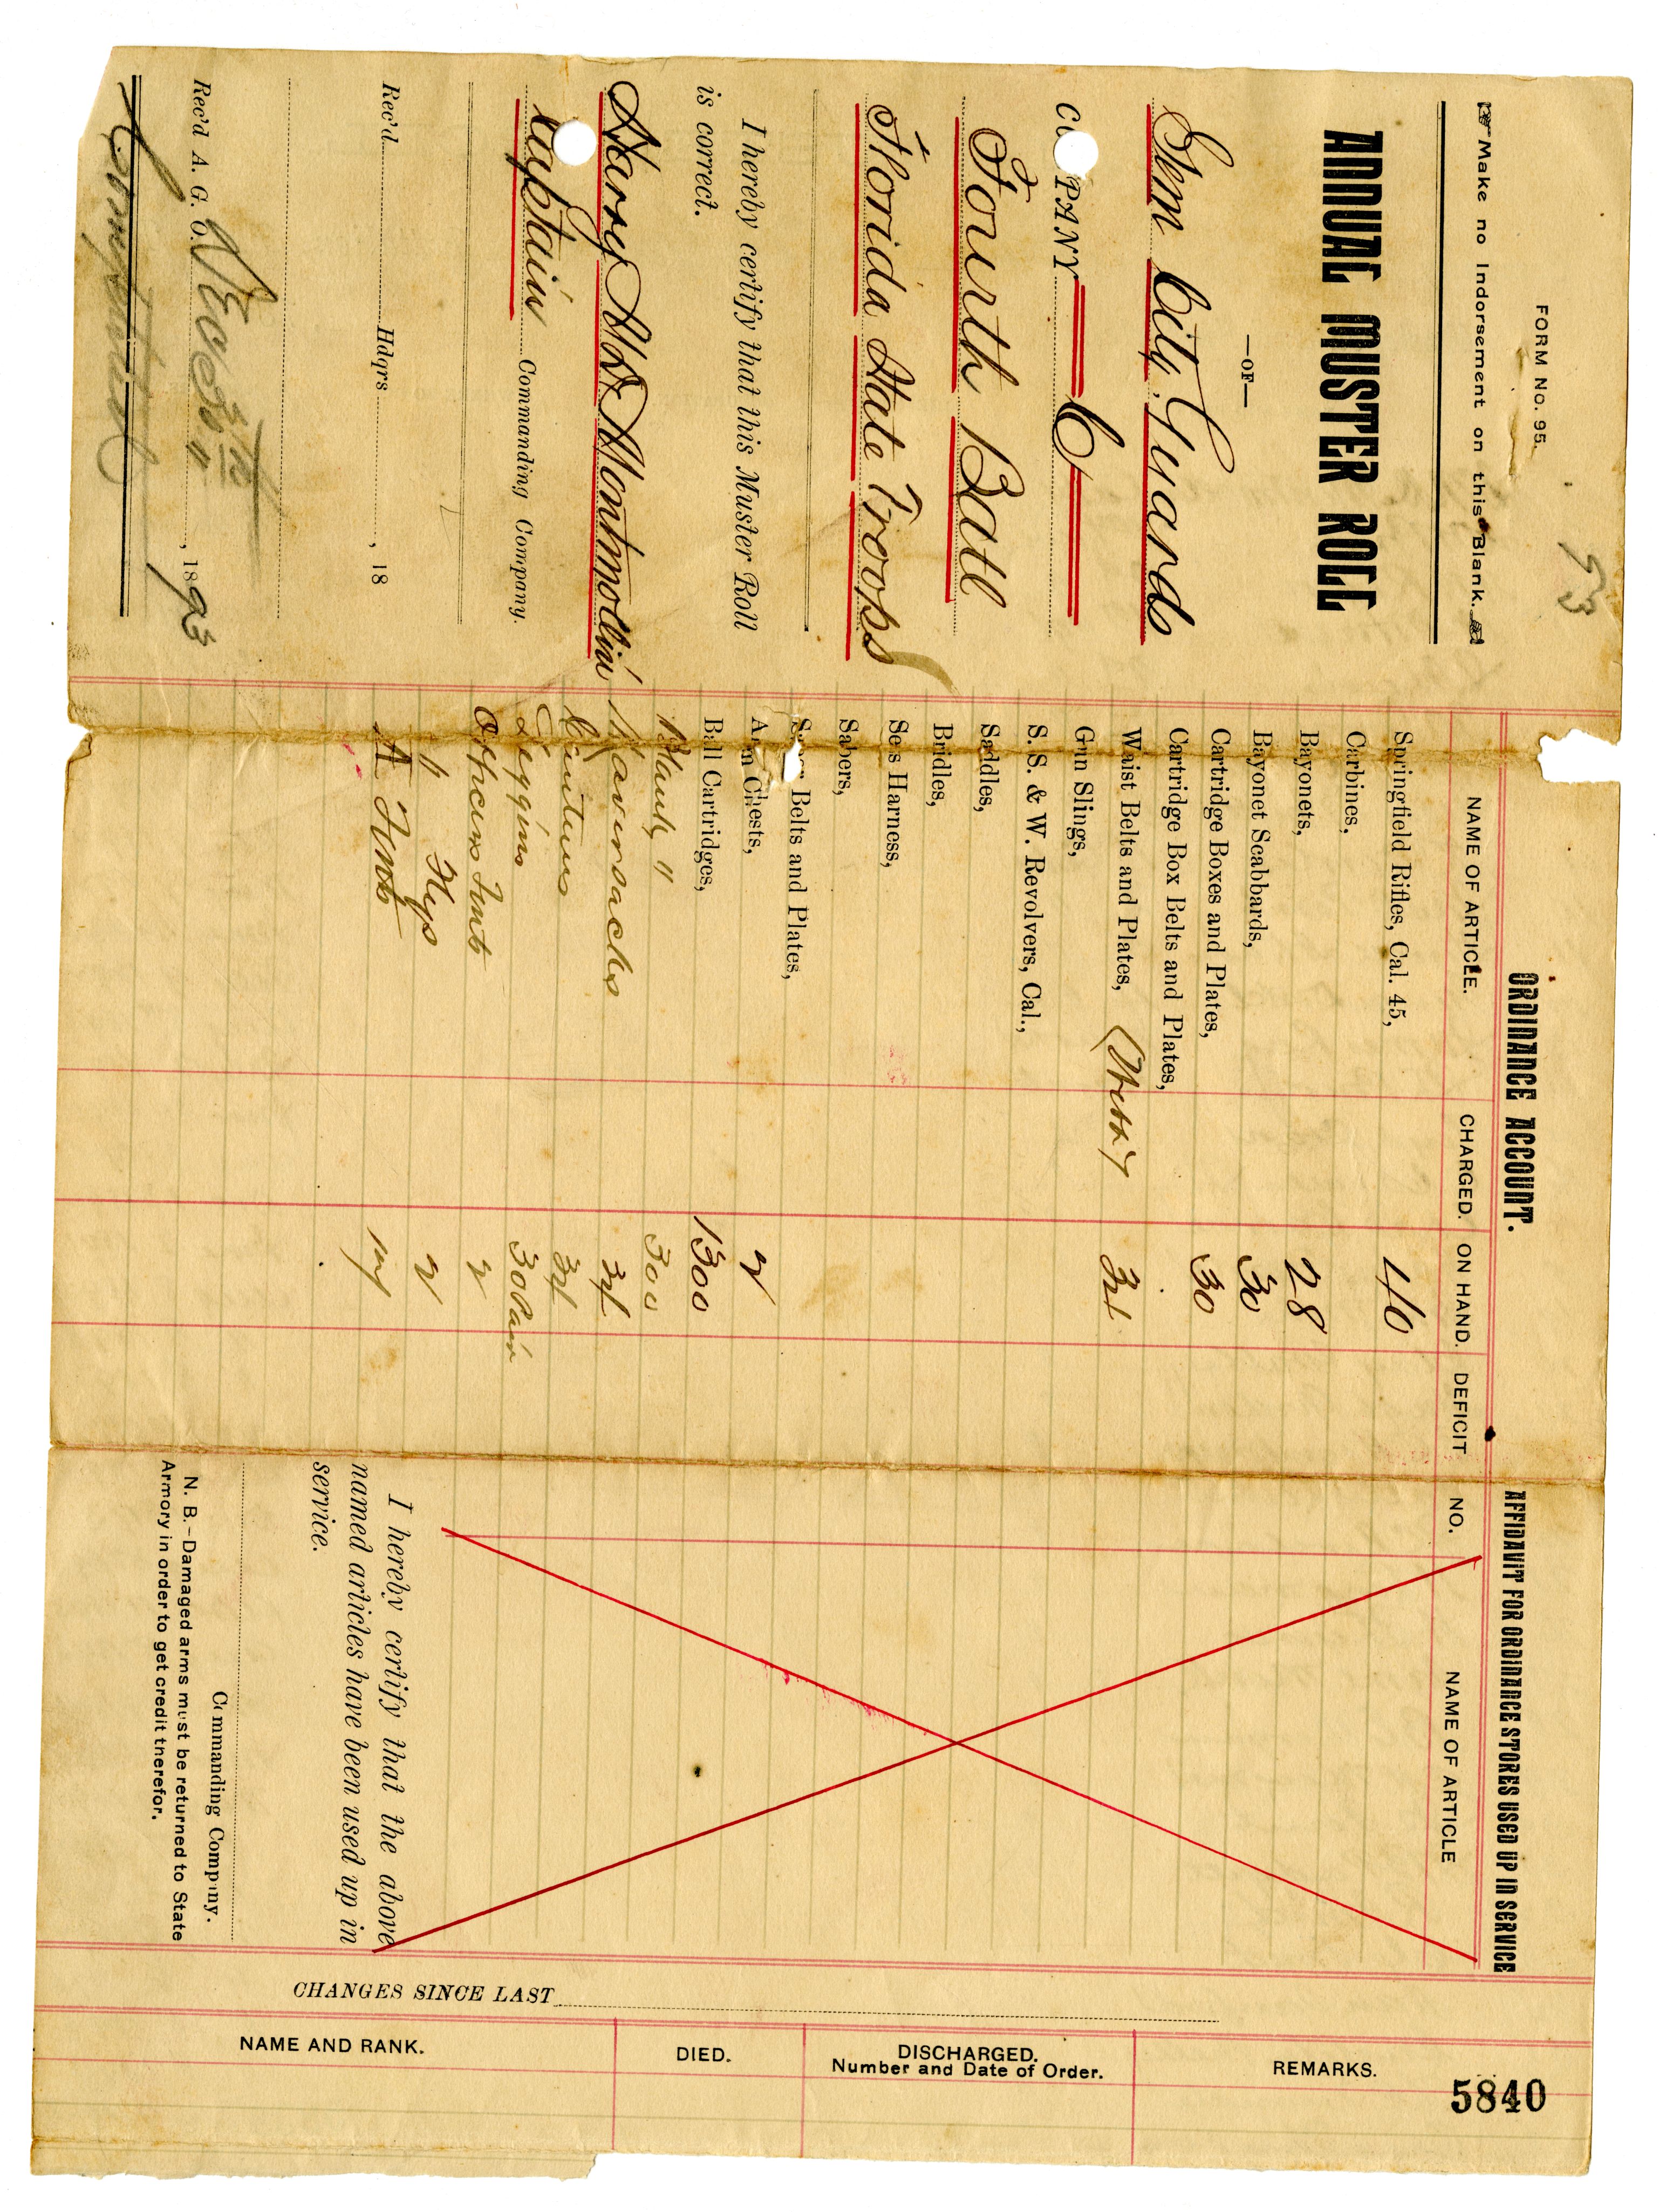 53
FORM No. 95.
Make no Indorsement on this Blank.
ANNUAL MUSTER ROLL
—OF—
Gem City Guards
COMPANY C
Fourth Batl
Florida State Troops
I hereby certify that this Muster Roll
is correct.
Harry
Captain Commanding Company.
Rec'd Hdqrs , 18
Rec'd A. G. O. , 1893
ORDINANCE ACCOUNT.
NAME OF ARTICLE. CHARGED. ON HAND. DEFICIT
Springfield Rifles, Cal. 45, 40
Carbines,
Bayonets, 28
Bayonet Scabbards, 30
Cartridge Boxes and Plates, 30
Cartridge Box Belts and Plates,
Waist Belts and Plates,
Gun Slings,
S. S. & W. Revolvers, Cal.,
Saddles,
Bridles,
Sets Harness,
Sabers,
Saber Belts and Plates,
Arm Chests, 2
Ball Cartridges, 1300
Blank " 300
Haversacks
Canteens
Leggins 30 Pair
Officers Tents 2
" Flys 2
A Tents
AFFIDAVIT FOR ORDINANCE STORES USED UP IN SERVICE
NO. NAME OF ARTICLE
I hereby certify that the above
named articles have been used up in
service.
Commanding Company.
N. B.—Damaged arms must be returned to State
Armory in order to get credit therefor.
CHANGES SINCE LAST
NAME AND RANK. DIED. DISCHARGED. REMARKS.
Number and Date of Order.
5840